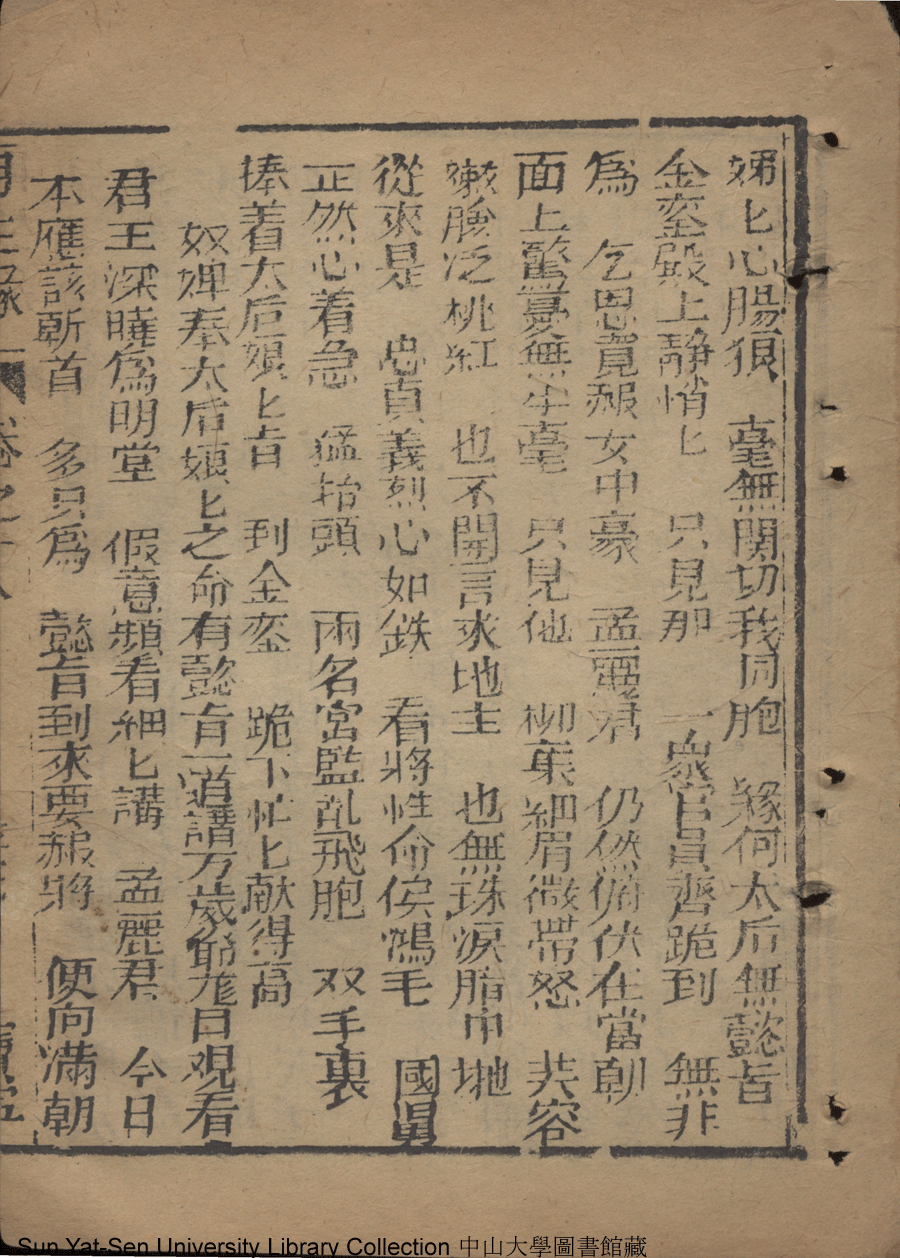 娣匕心腸狠　毫無関切我同胞　緣何太后無懿旨
金銮殿上静悄匕　只見那　一衆官員齊跪到　無非
為　乞恩寛赧女中豪　孟麗君　仍然俯伏在當朝
面上驚憂無半毫　只見他　柳葉細眉微帯怒　芙容
嫩臉泛桃紅　也不開言求地主　也無珠淚脂巾地
從來是　忠貞義烈心如鉄　看將性命侯鴻毛　國舅
正然心着急　猛抬頭　兩名宮監乱飛胞　双手裏
捧着太后娘匕旨　到金銮　跪下忙匕献得高
奴婢奉太后娘匕之命有懿旨一道請万歲爺龙目观看
君王深曉為明堂　假意頻看細匕講　孟麗君　今日
本應該斬首　多只為　懿旨到來要赧將　便向滿朝
卷之十八
Sun Yat-Sen University Library Collection 中山大學圖書館藏